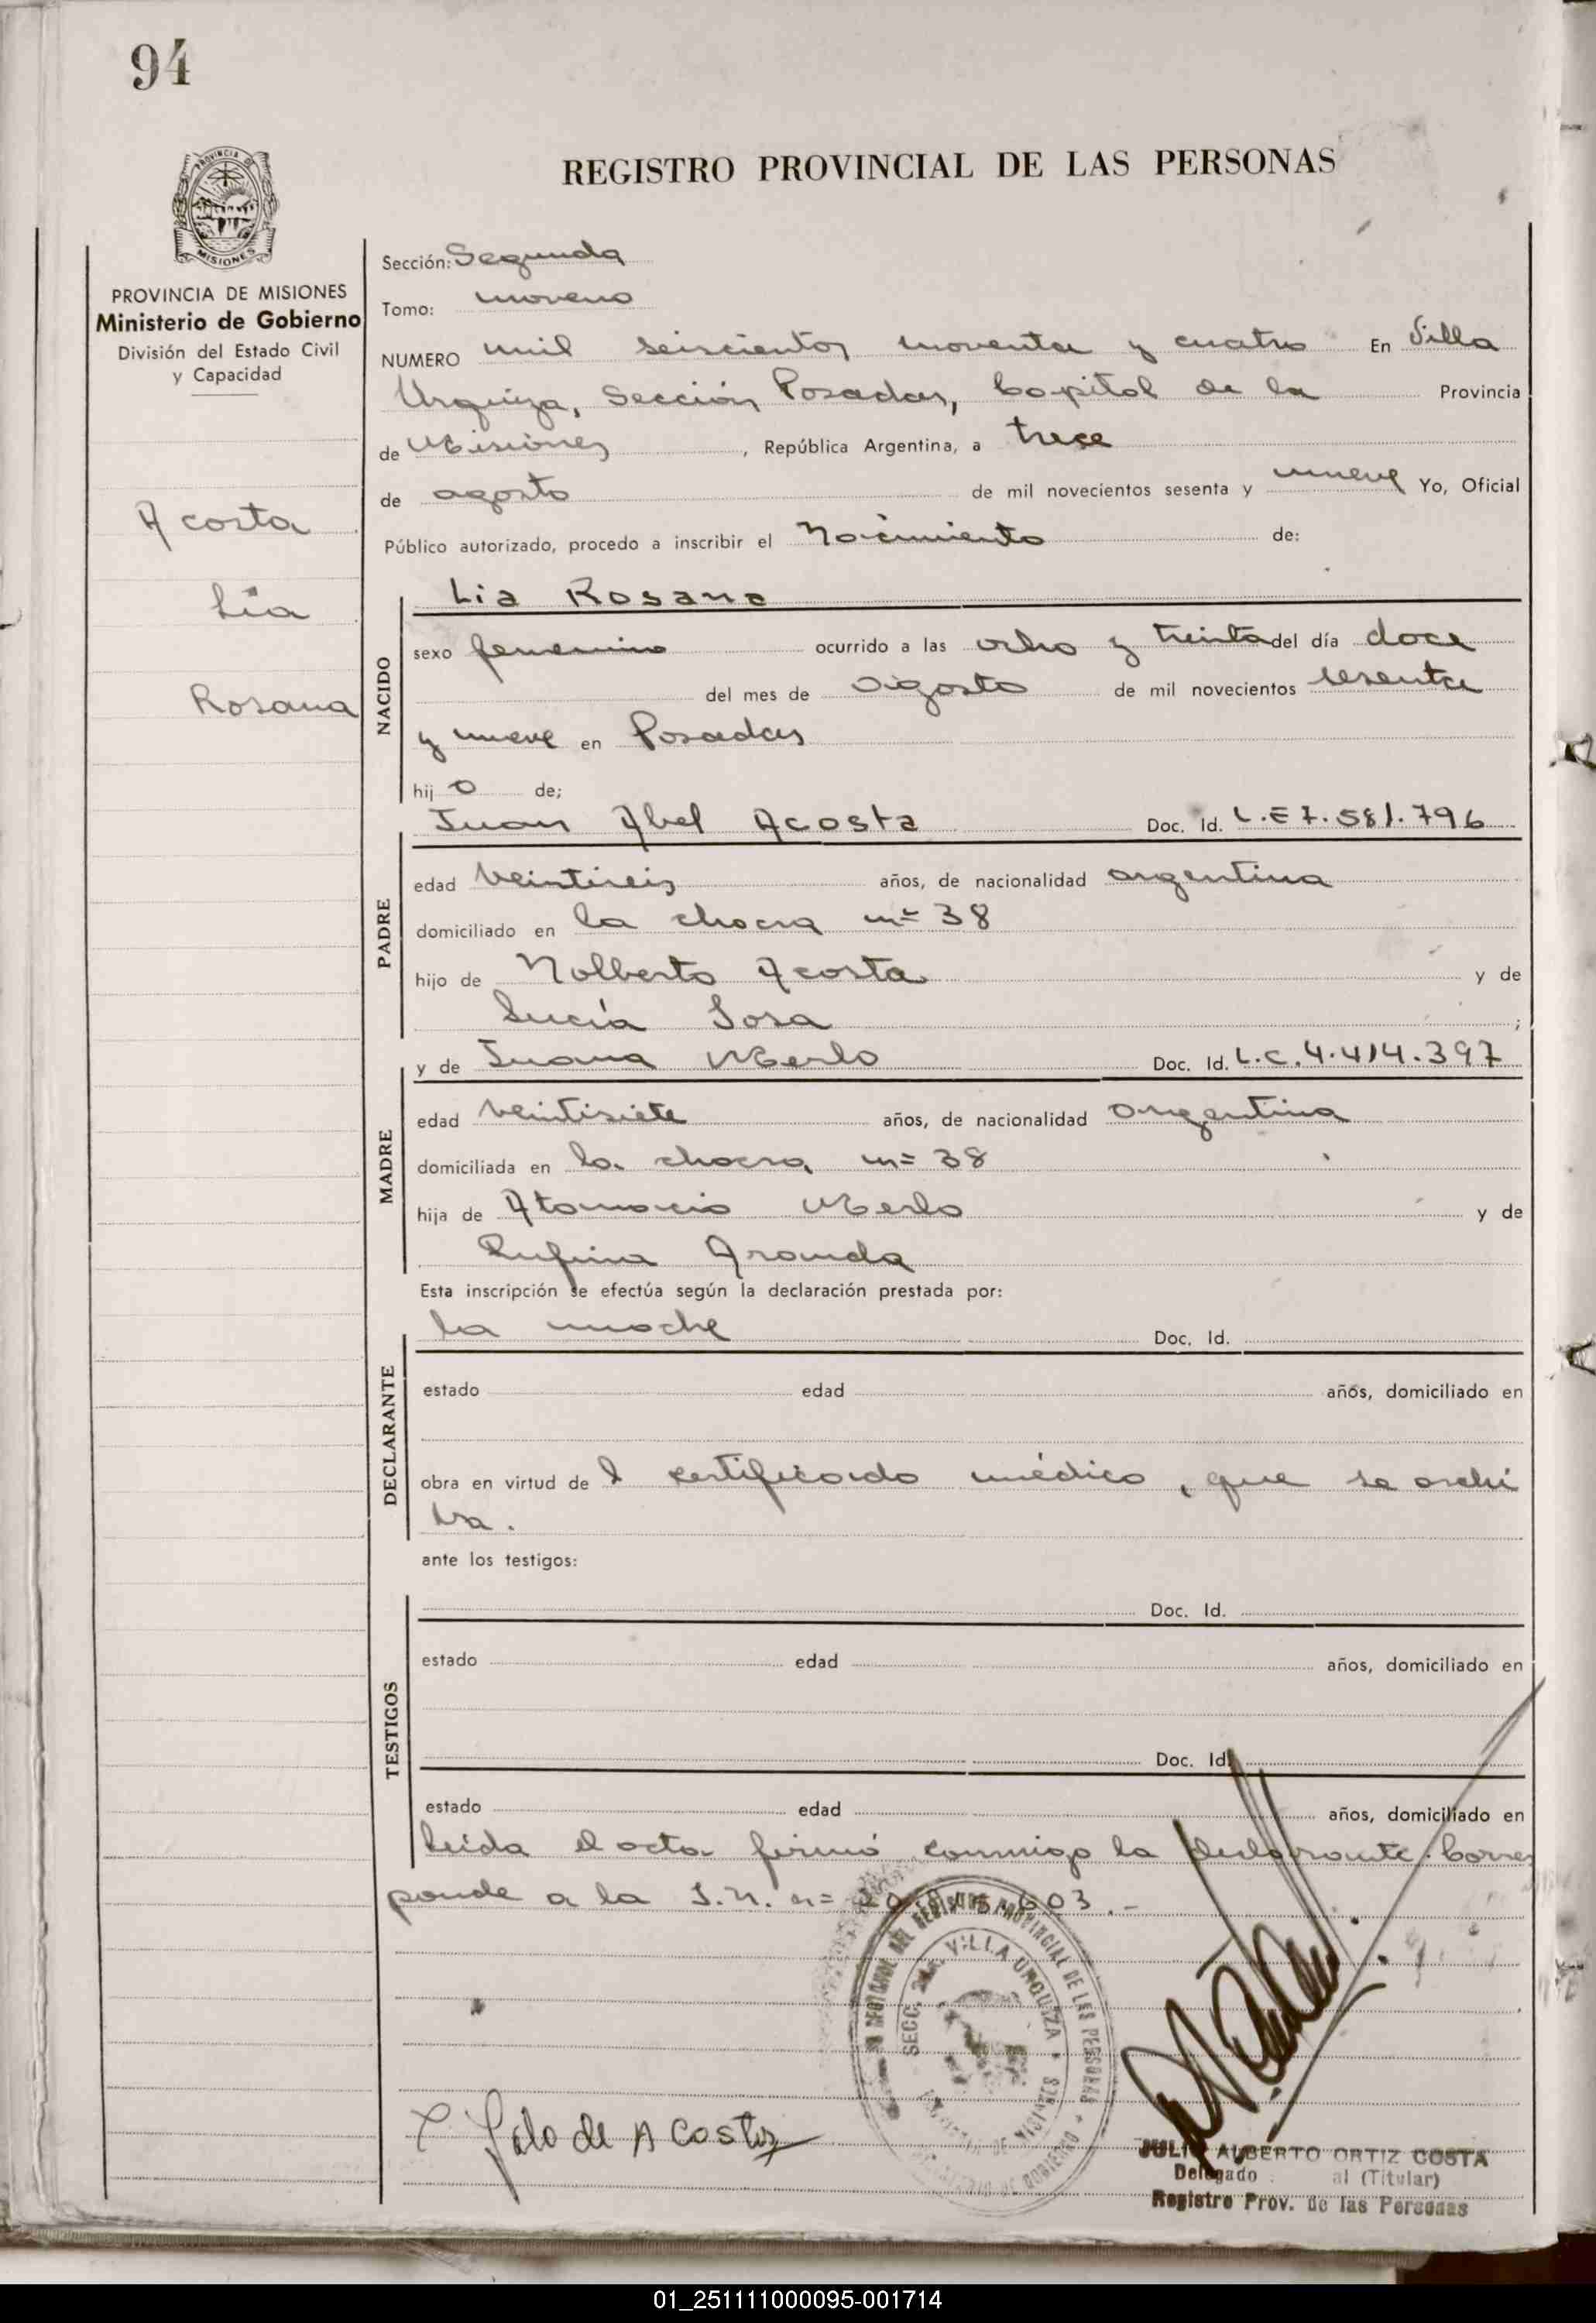 94
REGISTRO PROVINCIAL DE LAS PERSONAS
PROVINCIA DE MISIONES
MISIONES
PROVINCIA DE MISIONES
Ministerio de Gobierno
División del Estado Civil
y Capacidad
Acosta
Lía
Rosana
Sección: Segunda
Tomo: noveno
NUMERO mil seiscientos noventa y cuatro En Villa
Urquiza, Sección Posadas, Capital de la Provincia
de Misiones, República Argentina, a trece
de agosto de mil novecientos sesenta y nueve Yo, Oficial
Público autorizado, procedo a inscribir el Nacimiento de:
Lia Rosana
NACIDO
sexo femenino ocurrido a las ocho y treinta del día doce
del mes de agosto de mil novecientos sesenta
y nueve en Posadas
hij o de;
Juan Abel Acosta Doc. Id. L.E 7.581.796
PADRE
edad veintiseis años, de nacionalidad argentina
domiciliado en la chacra nº 38
hijo de Nolberto Acosta y de
Lucía Sosa ;
y de Juana Merlo Doc. Id. L.C. 4.414.397
MADRE
edad veintisiete años, de nacionalidad argentina
domiciliada en la chacra nº 38
hija de Atanacio Merlo y de
Rufina Aranda
Esta inscripción se efectúa según la declaración prestada por:
la madre Doc. Id.
DECLARANTE
estado edad años, domiciliado en
obra en virtud de l certificado médico, que se archi
va.
ante los testigos:
Doc. Id.
TESTIGOS
estado edad años, domiciliado en
Doc. Id.
estado edad años, domiciliado en
Leída el acta firmó conmigo la declarante. Corres
ponde a la I.N. nº 603.-
DEL REGISTRO PROVINCIAL DE LAS PERSONAS
SECC. 2da. VILLA URQUIZA
de Acosta
JULIO ALBERTO ORTIZ COSTA
Delegado al (Titular)
Registro Prov. de las Personas
01_251111000095-001714